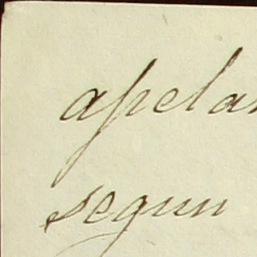 apela
segun